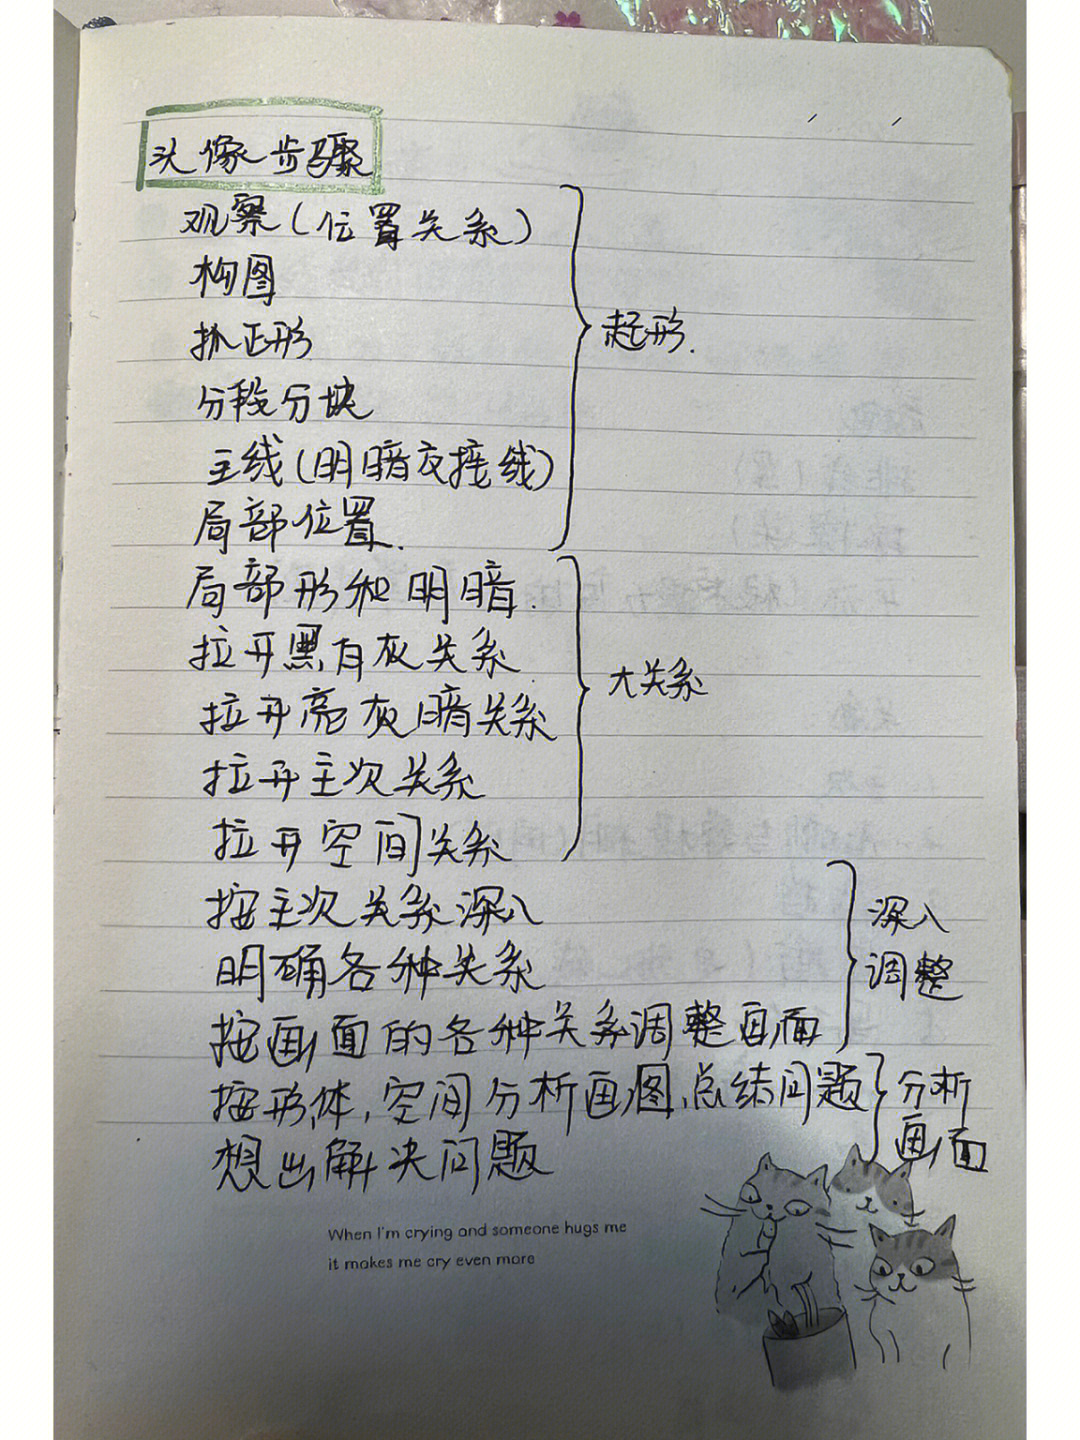 头像步骤
观察(位置关系)
构图
抓正形
起形.
分段分块
主线(明暗交接线)
局部位置.
局部形和明暗.
拉开黑白灰关系
大关系
拉开亮灰暗关系
拉开主次关系
拉开空间关系
按主次关系深入
深入
明确各种关系
调整
按画面的各种关系调整画面
按形体,空间分析画图,总结问题
分析
画面
想出解决问题
When I'm crying and someone hugs me
it makes me cry even more